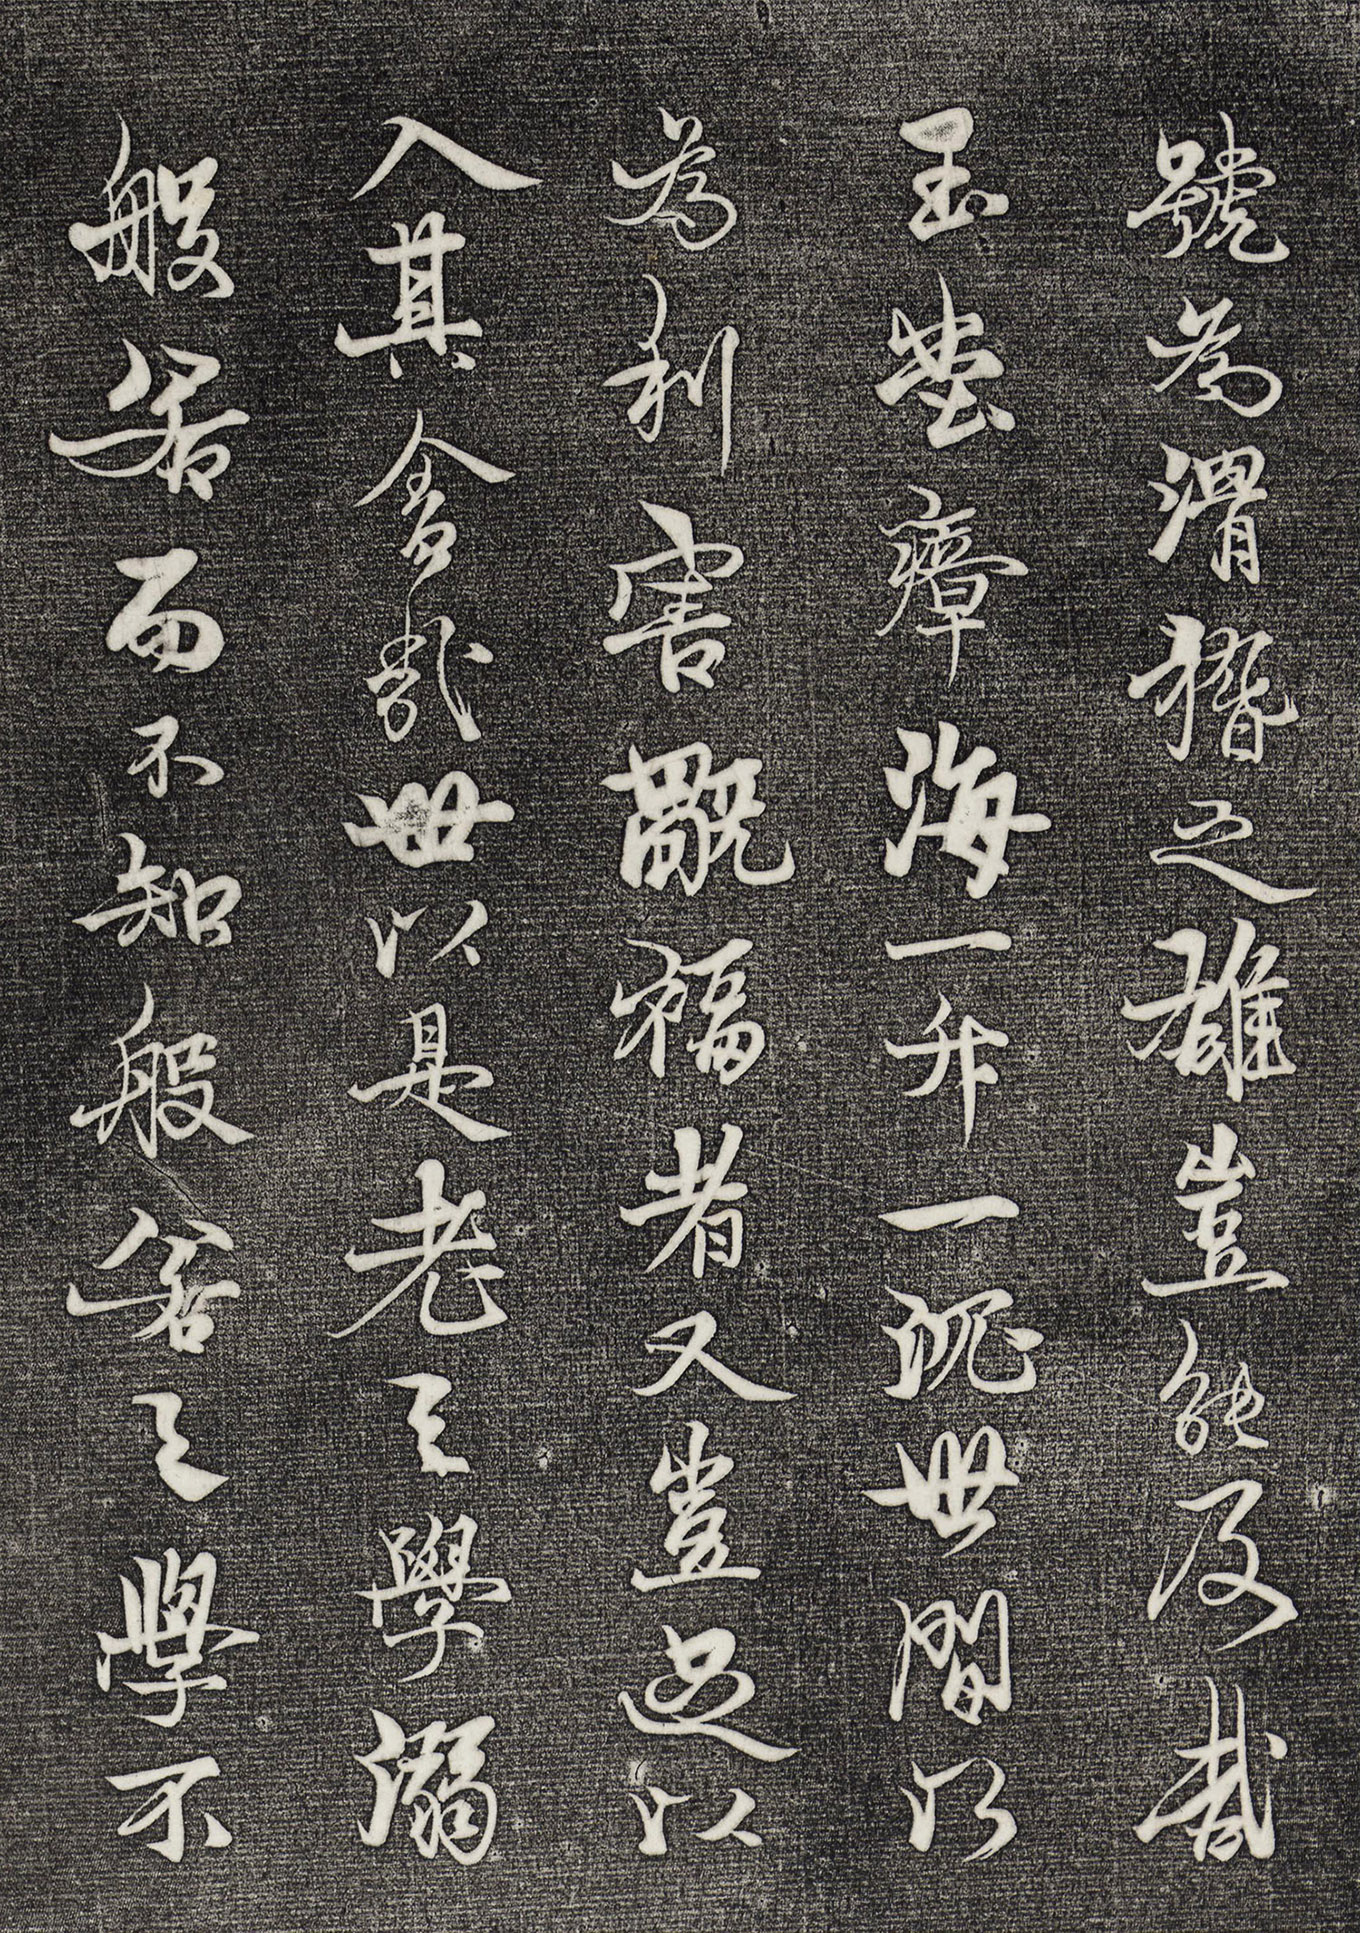 號為滑稽之雄豈能及哉
玉堂瘴海一升一沉世間以
為利害禍福者又豈足以
入其舍哉世以是老之學溺
般若而不知般若之學不